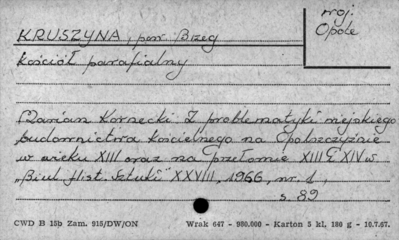 KRUSZYNA, pow. Brzeg
woj.
Opole
kościół parafialny
Marian Kornecki Z problematyki miejskiego
budownictwa kościelnego na Opolszczyźnie
w wieku XIII oraz na przełomie XIII i XIV w.
„Biul. Hist. Sztuki" XXVIII, 1966, nr. 1,
s. 89
CWD B 15b Zam. 915/DW/ON Wrak 647 - 990.000 - Karton 5 kl. 180 g - 10.7.67.